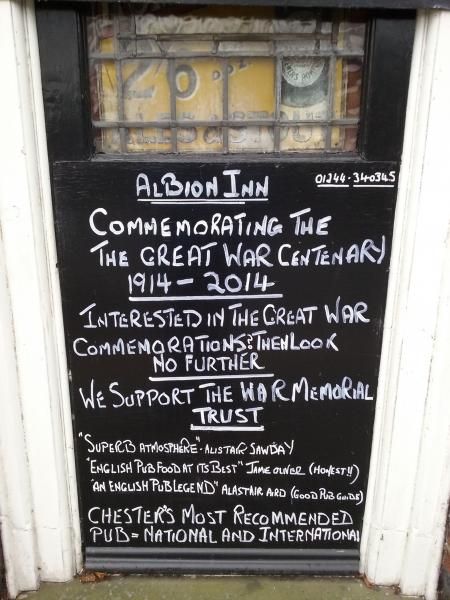 20
ALES & STOUT
ALBION INN
01244-340345
COMMEMORATING THE
THE GREAT WAR CENTENARY
1914-2014
INTERESTED IN THE GREAT WAR
COMMEMORATIONS? THEN LOOK
NO FURTHER
WE SUPPORT THE WAR MEMORIAL
TRUST
"SUPERB ATMOSPHERE" - ALISTAIR SAWDAY
"ENGLISH PUB FOOD AT ITS BEST" JAMIE OLIVER (HONEST!!)
"AN ENGLISH PUB LEGEND" ALASTAIR AIRD (GOOD PUB GUIDE)
CHESTER'S MOST RECOMMENDED
PUB = NATIONAL AND INTERNATIONAL